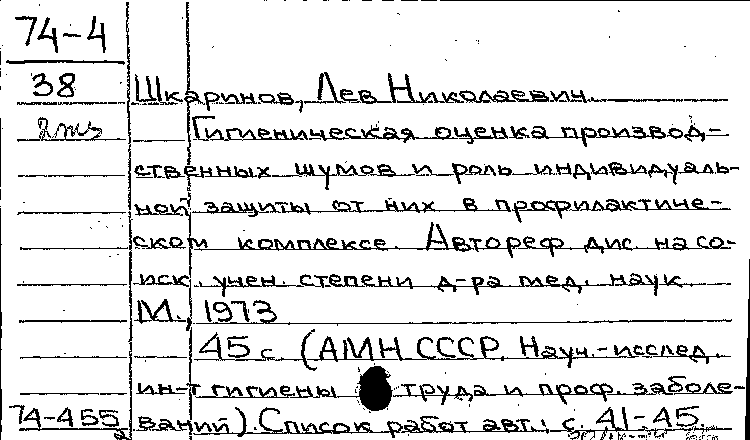 74-4
38
Шкаринов, Лев Николаевич.
Гигиеническая оценка производ-
ственных шумов и роль индивидуаль-
ной защиты от них в профилактиче-
ском комплексе. Автореф. дис. на со-
иск. учен. степени д-ра мед. наук.
М., 1973
45 с. (АМН СССР. Науч.-исслед.
ин-т гигиены труда и проф. заболе-
74-455 ваний). Список работ авт.: с. 41-45